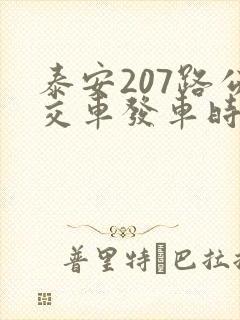 泰安207路公
交車發車時
普里特�巴拉拉